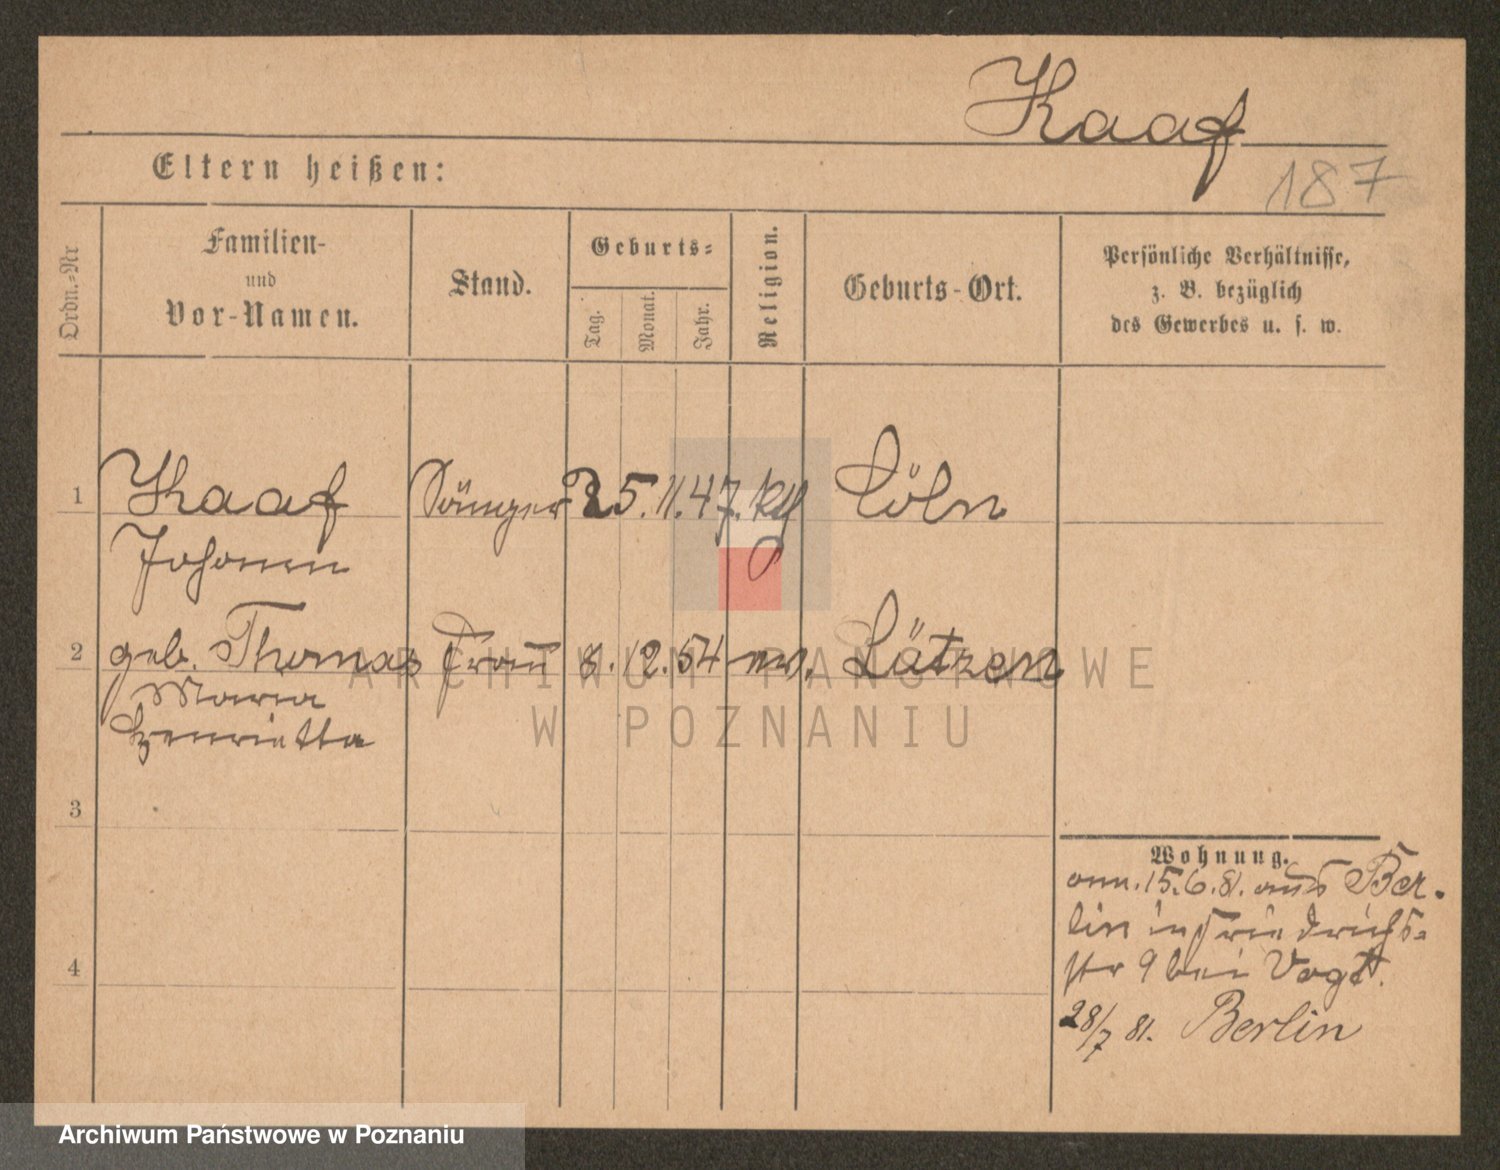 Kaaf
Eltern heißen:
187
Ordn.-Nr
Familien-
und
Vor-Namen.
Stand.
Geburts-
Tag.
Monat.
Jahr.
Religion.
Geburts-Ort.
Persönliche Verhältnisse,
z. B. bezüglich
des Gewerbes u. s. w.
1 Kaaf Sänger 25. 11. 47. kth Cöln
Johann
2 geb. Thomas Frau 8. 12. 54 ev. Lützen
Maria
Henrietta
3
Wohnung.
ann. 15.6.81. aus Ber-
lin in Friedrichs-
str 9 bei Vogt.
4
28/7 81. Berlin
ARCHIWUM PAŃSTWOWE
W POZNANIU
Archiwum Państwowe w Poznaniu